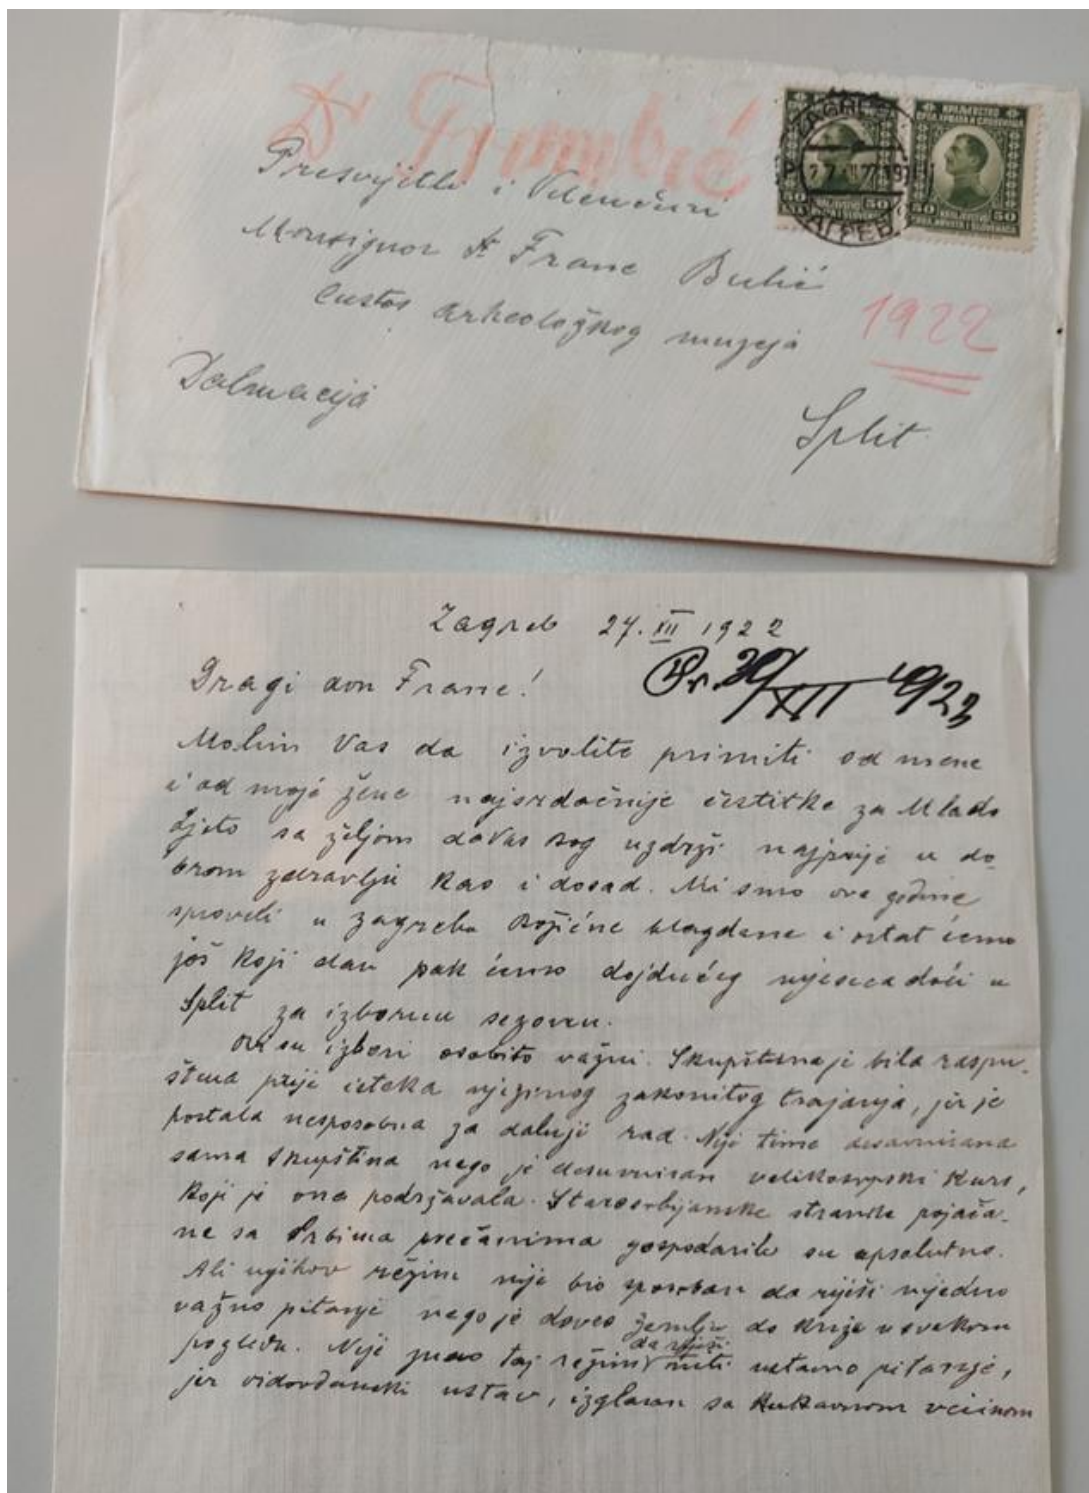 Dr Trumbić
Presvijetli i Velenčuri
Monsignor Dr Frane Bulić
Custos arheološkog muzeja
Dalmacija
Split
1922
ZAGREB
КРАЉЕВСТВО
СРБА, ХРВАТА И СЛОВЕНАЦА
50 50
KRALJEVSTVO
SRBA, HRVATA I SLOVENACA
Zagreb 27. XII 1922
Pr. 30/XII 1922
Dragi don Frane!
Molim Vas da izvolite primiti od mene
i od moje žene najsrdačnije čestitke za Mlado
Ljeto sa željom da Vas Bog uzdrži najprije u do
brom zdravlju kao i dosad. Mi smo ove godine
sproveli u Zagrebu Božićne blagdane i ostat ćemo
još koji dan pak ćemo dojdućeg mjeseca doći u
Split za izbornu sezonu.
Ovi su izbori osobito važni. Skupština je bila raspu-
štena prije isteka njezinog zakonitog trajanja, jer je
postala nesposobna za dalnji rad. Nije time desavuirana
sama Skupština nego je desavuiran velikosrpski kurs,
koji je ona podržavala. Starosrbijanske stranke pojača-
ne sa Srbima prečanima gospodarile su apsolutno.
Ali njihov režim nije bio sposoban da riješi nijedno
važno pitanje nego je doveo zemlju do krize u svakom
pogledu. Nije znao taj režim da riješi niti ustavno pitanje,
jer vidovdanski ustav, izglasan sa kukavnom većinom